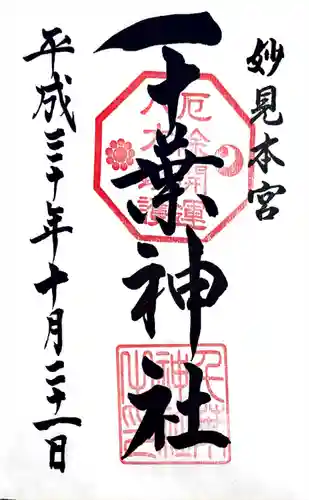 妙見本宮
千葉神社
平成三十年十月二十一日
厄除開運
八方除
千葉
神社
之印